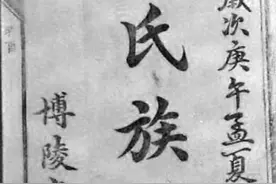 歲次庚午孟夏
氏族
博陵